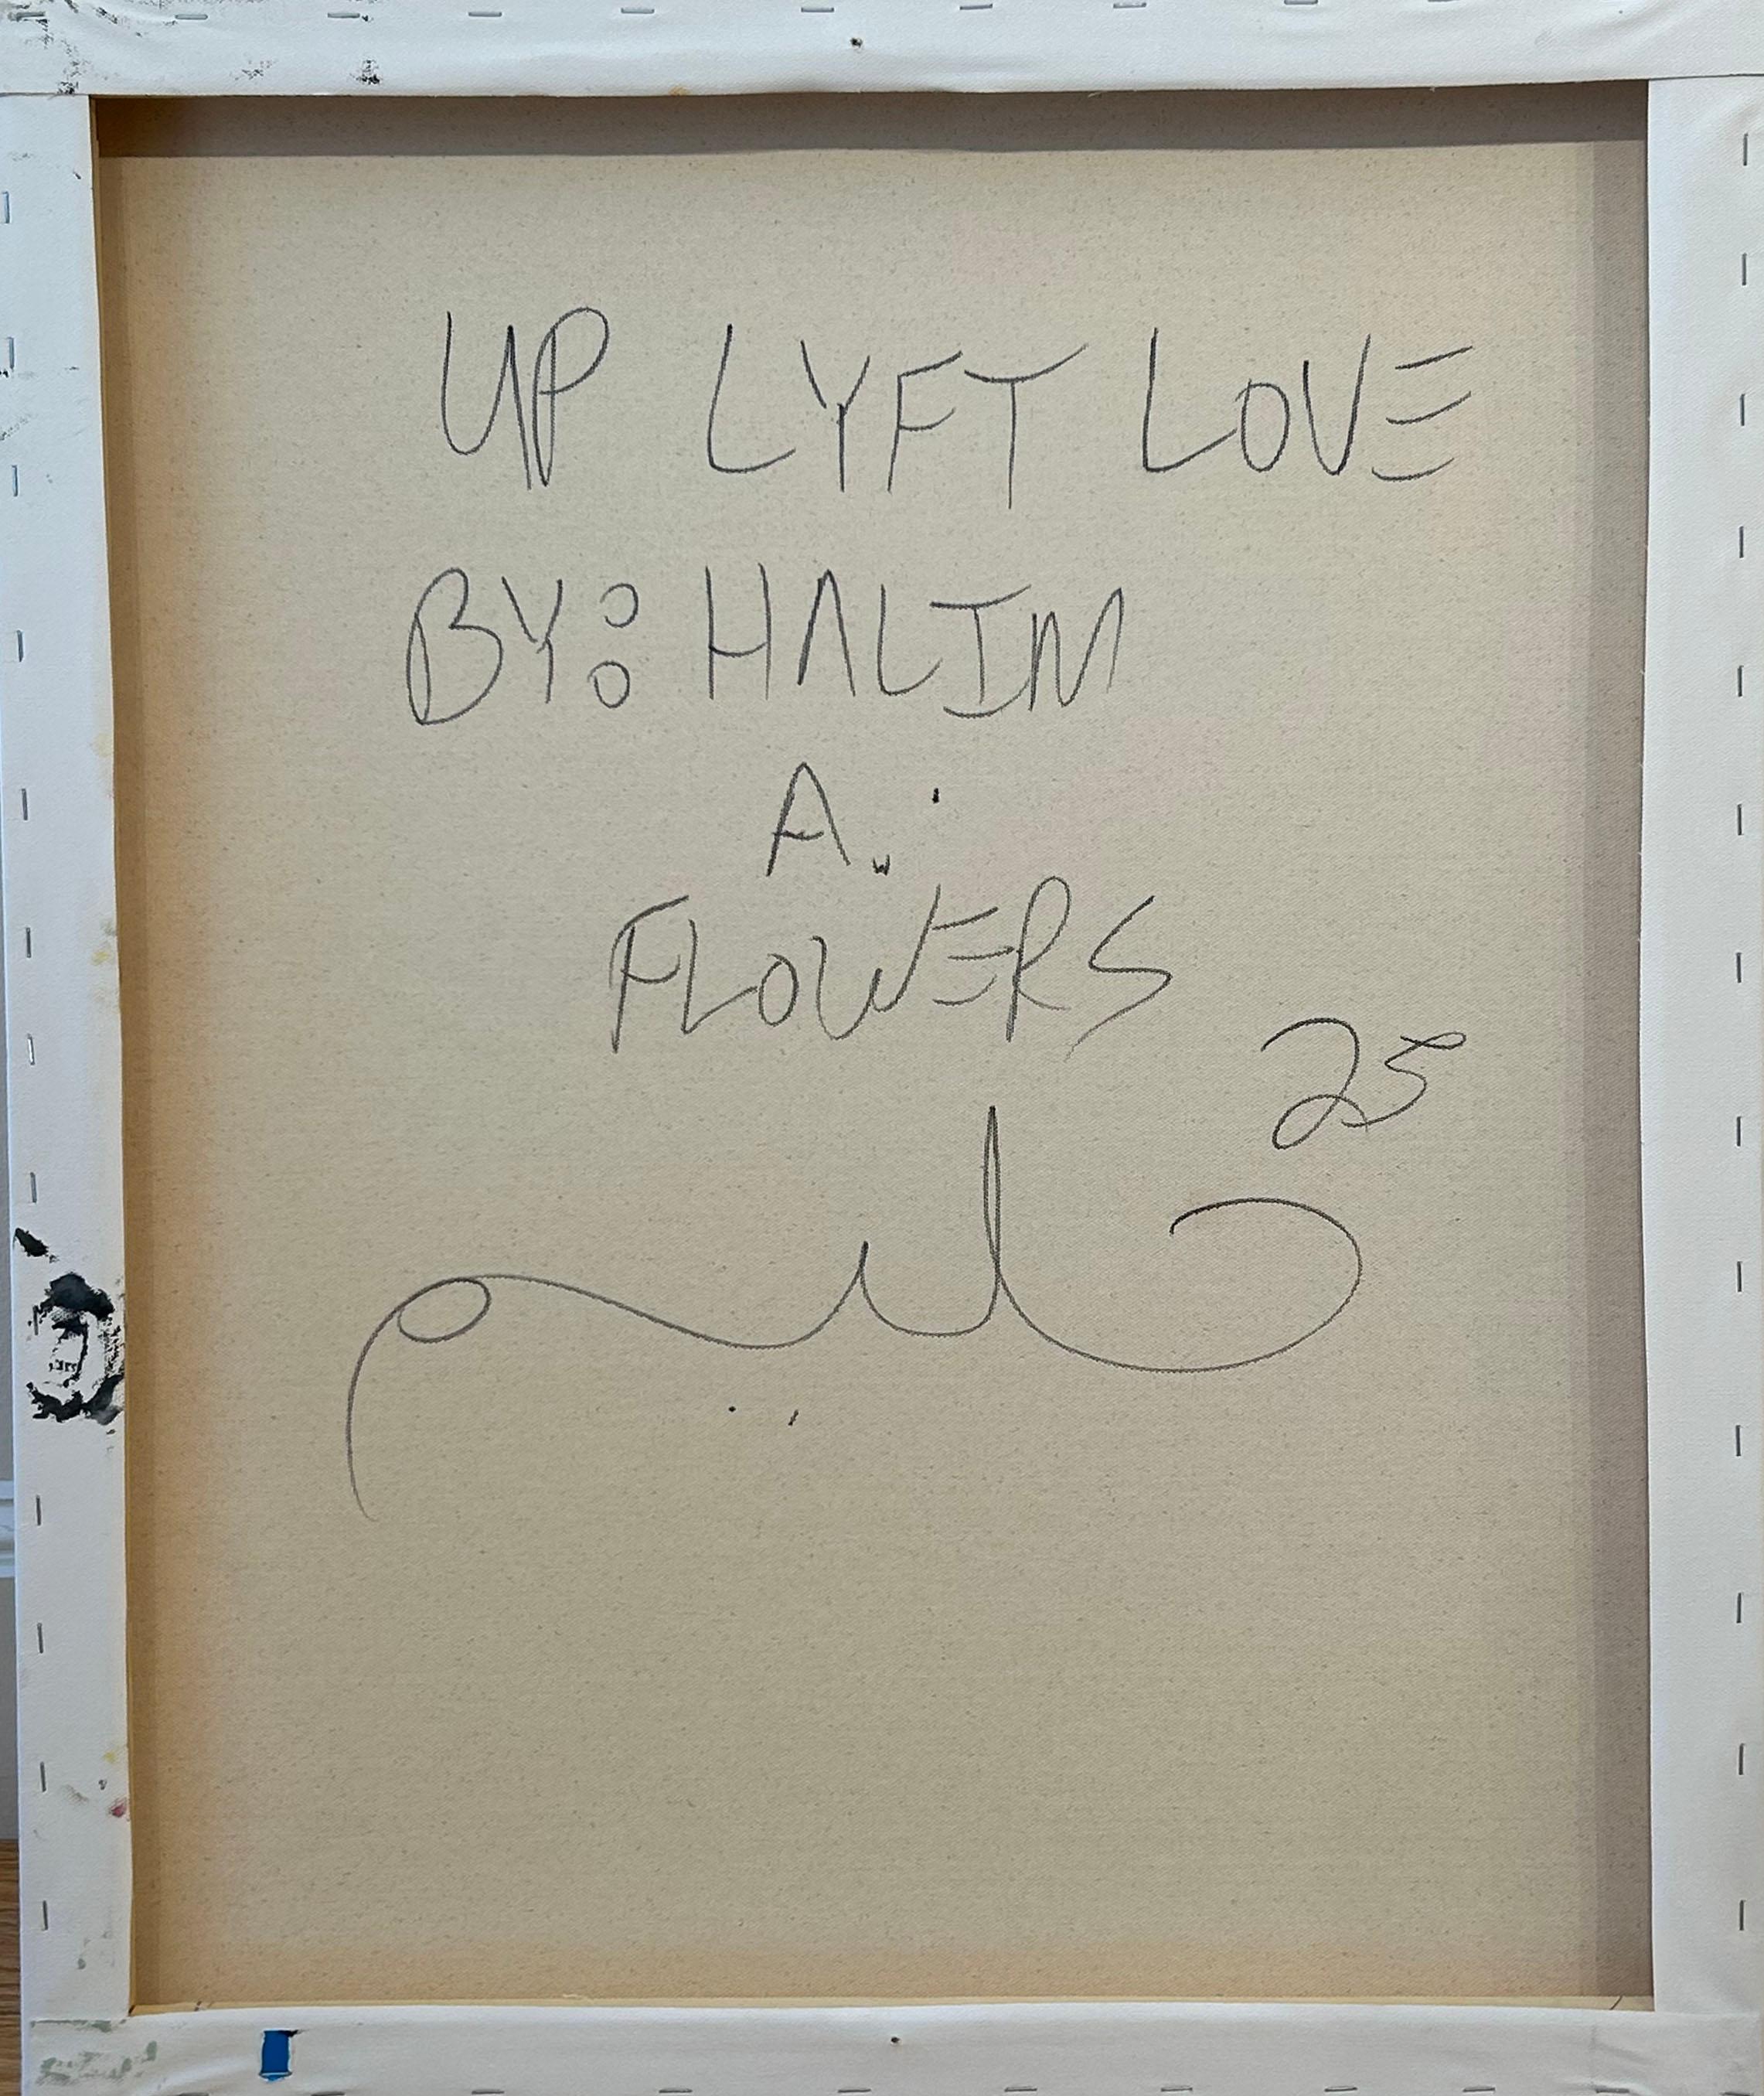 UP LYFT LOVE
BY: HALIM
A.
FLOWERS
25
حليم